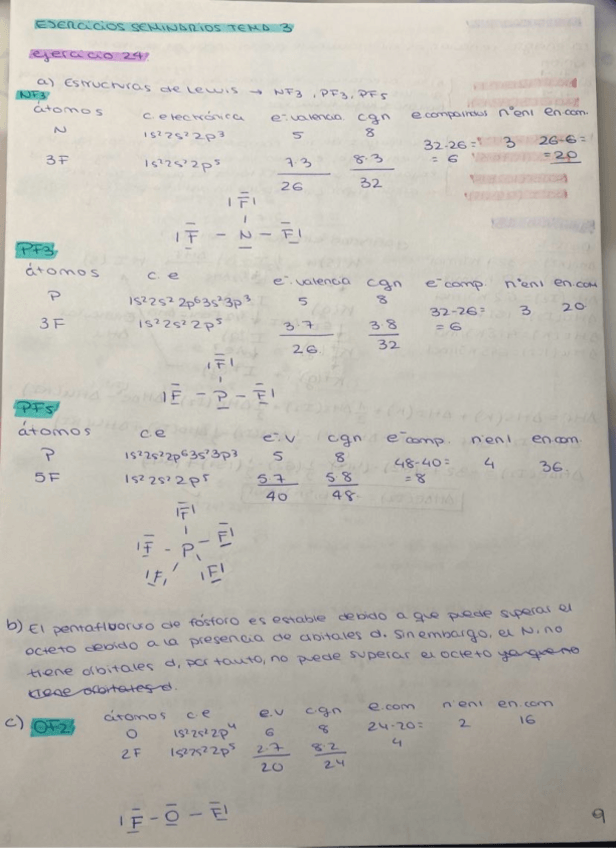 EJERCICIOS SEMINARIOS TEMA 3
ejercicio 24
a) Estructuras de Lewis → NF3, PF3, PF5
NF3
átomos c. electrónica e⁻ valencia cgn e compartidos nºenl en.com.
N 1s²2s²2p³ 5 8 32-26= 3 26-6=
3F 1s²2s²2p⁵ 7·3 8·3 = 6 = 20
26 32
|F|
|F - N - F|
PF3
átomos c.e e⁻ valencia cgn e⁻comp. nºenl en.com
P 1s²2s²2p⁶3s²3p³ 5 8 32-26= 3 20
3F 1s²2s²2p⁵ 3·7 3·8 = 6
26 32
|F|
|F - P - F|
PF5
átomos c.e e⁻.v cgn e⁻comp. nºenl en.com.
P 1s²2s²2p⁶3s²3p³ 5 8 48-40= 4 36
5F 1s²2s²2p⁵ 5·7 5·8 = 8
40 48
|F|
|F - P - F|
|F| |F|
b) El pentafluoruo de fósforo es estable debido a que puede superar el
octeto debido a la presencia de orbitales d. Sin embargo, el N, no
tiene orbitales d, por tanto, no puede superar el octeto ya que no
tiene orbitales d.
c) OF2 átomos c.e e.v cgn e.com nºenl en.com
O 1s²2s²2p⁴ 6 8 24-20= 2 16
2F 1s²2s²2p⁵ 2·7 8·2 4
20 24
|F - O - F|
9